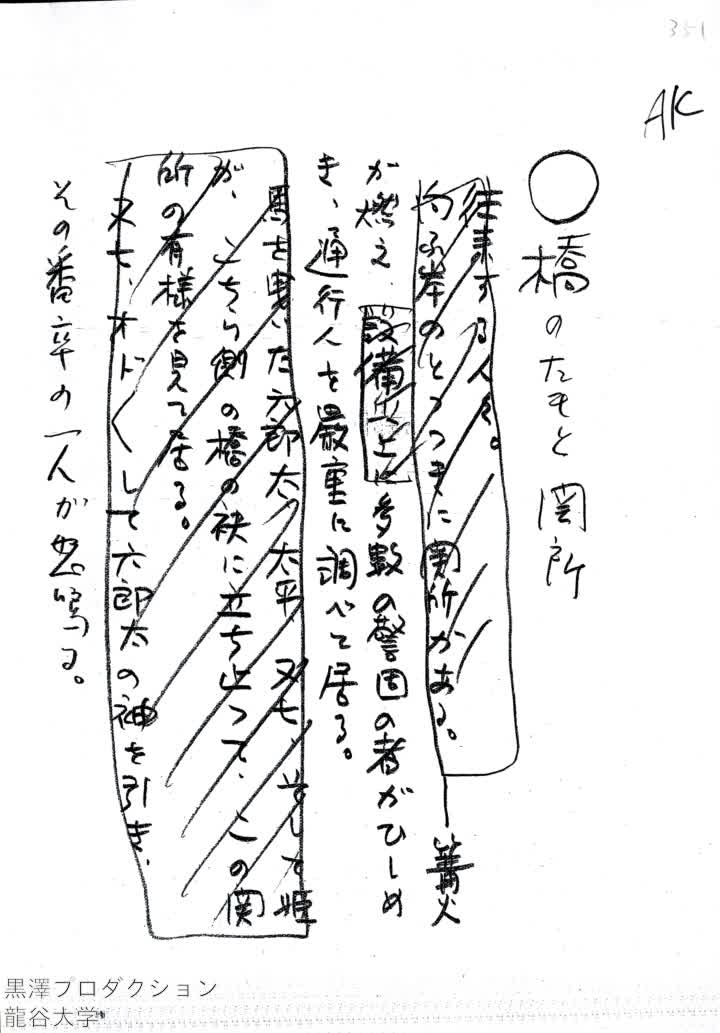 351
AK
○橋のたもと 関所
往来する人々。
向ふ岸のとっつきに関所がある。
篝火
が燃え 設備
上に多数の警固の者がひしめ
き、通行人を厳重に調べて居る。
馬を曳いた六郎太、太平、又七、そして姫
が、こちら側の橋の袂に立ち止つて、この関
所の有様を見て居る。
又七、オド〱して六郎太の神を引き、
その番卒の一人が怒鳴る。
黒澤プロダクション
龍谷大学